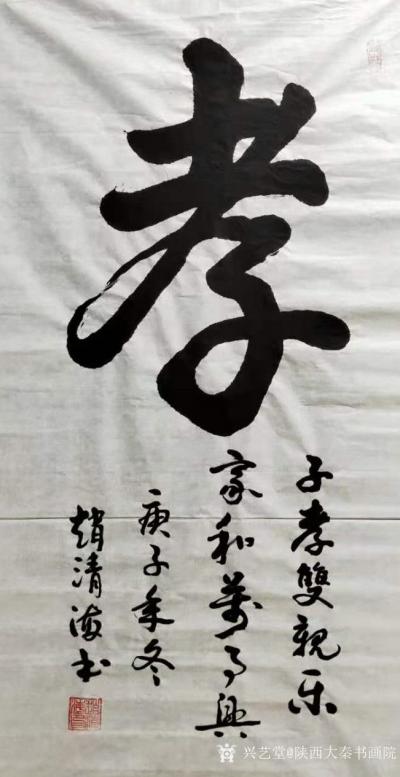 孝
子孝雙親乐
家和萬事興
庚子年冬
趙清海书
兴艺堂@陕西大秦书画院